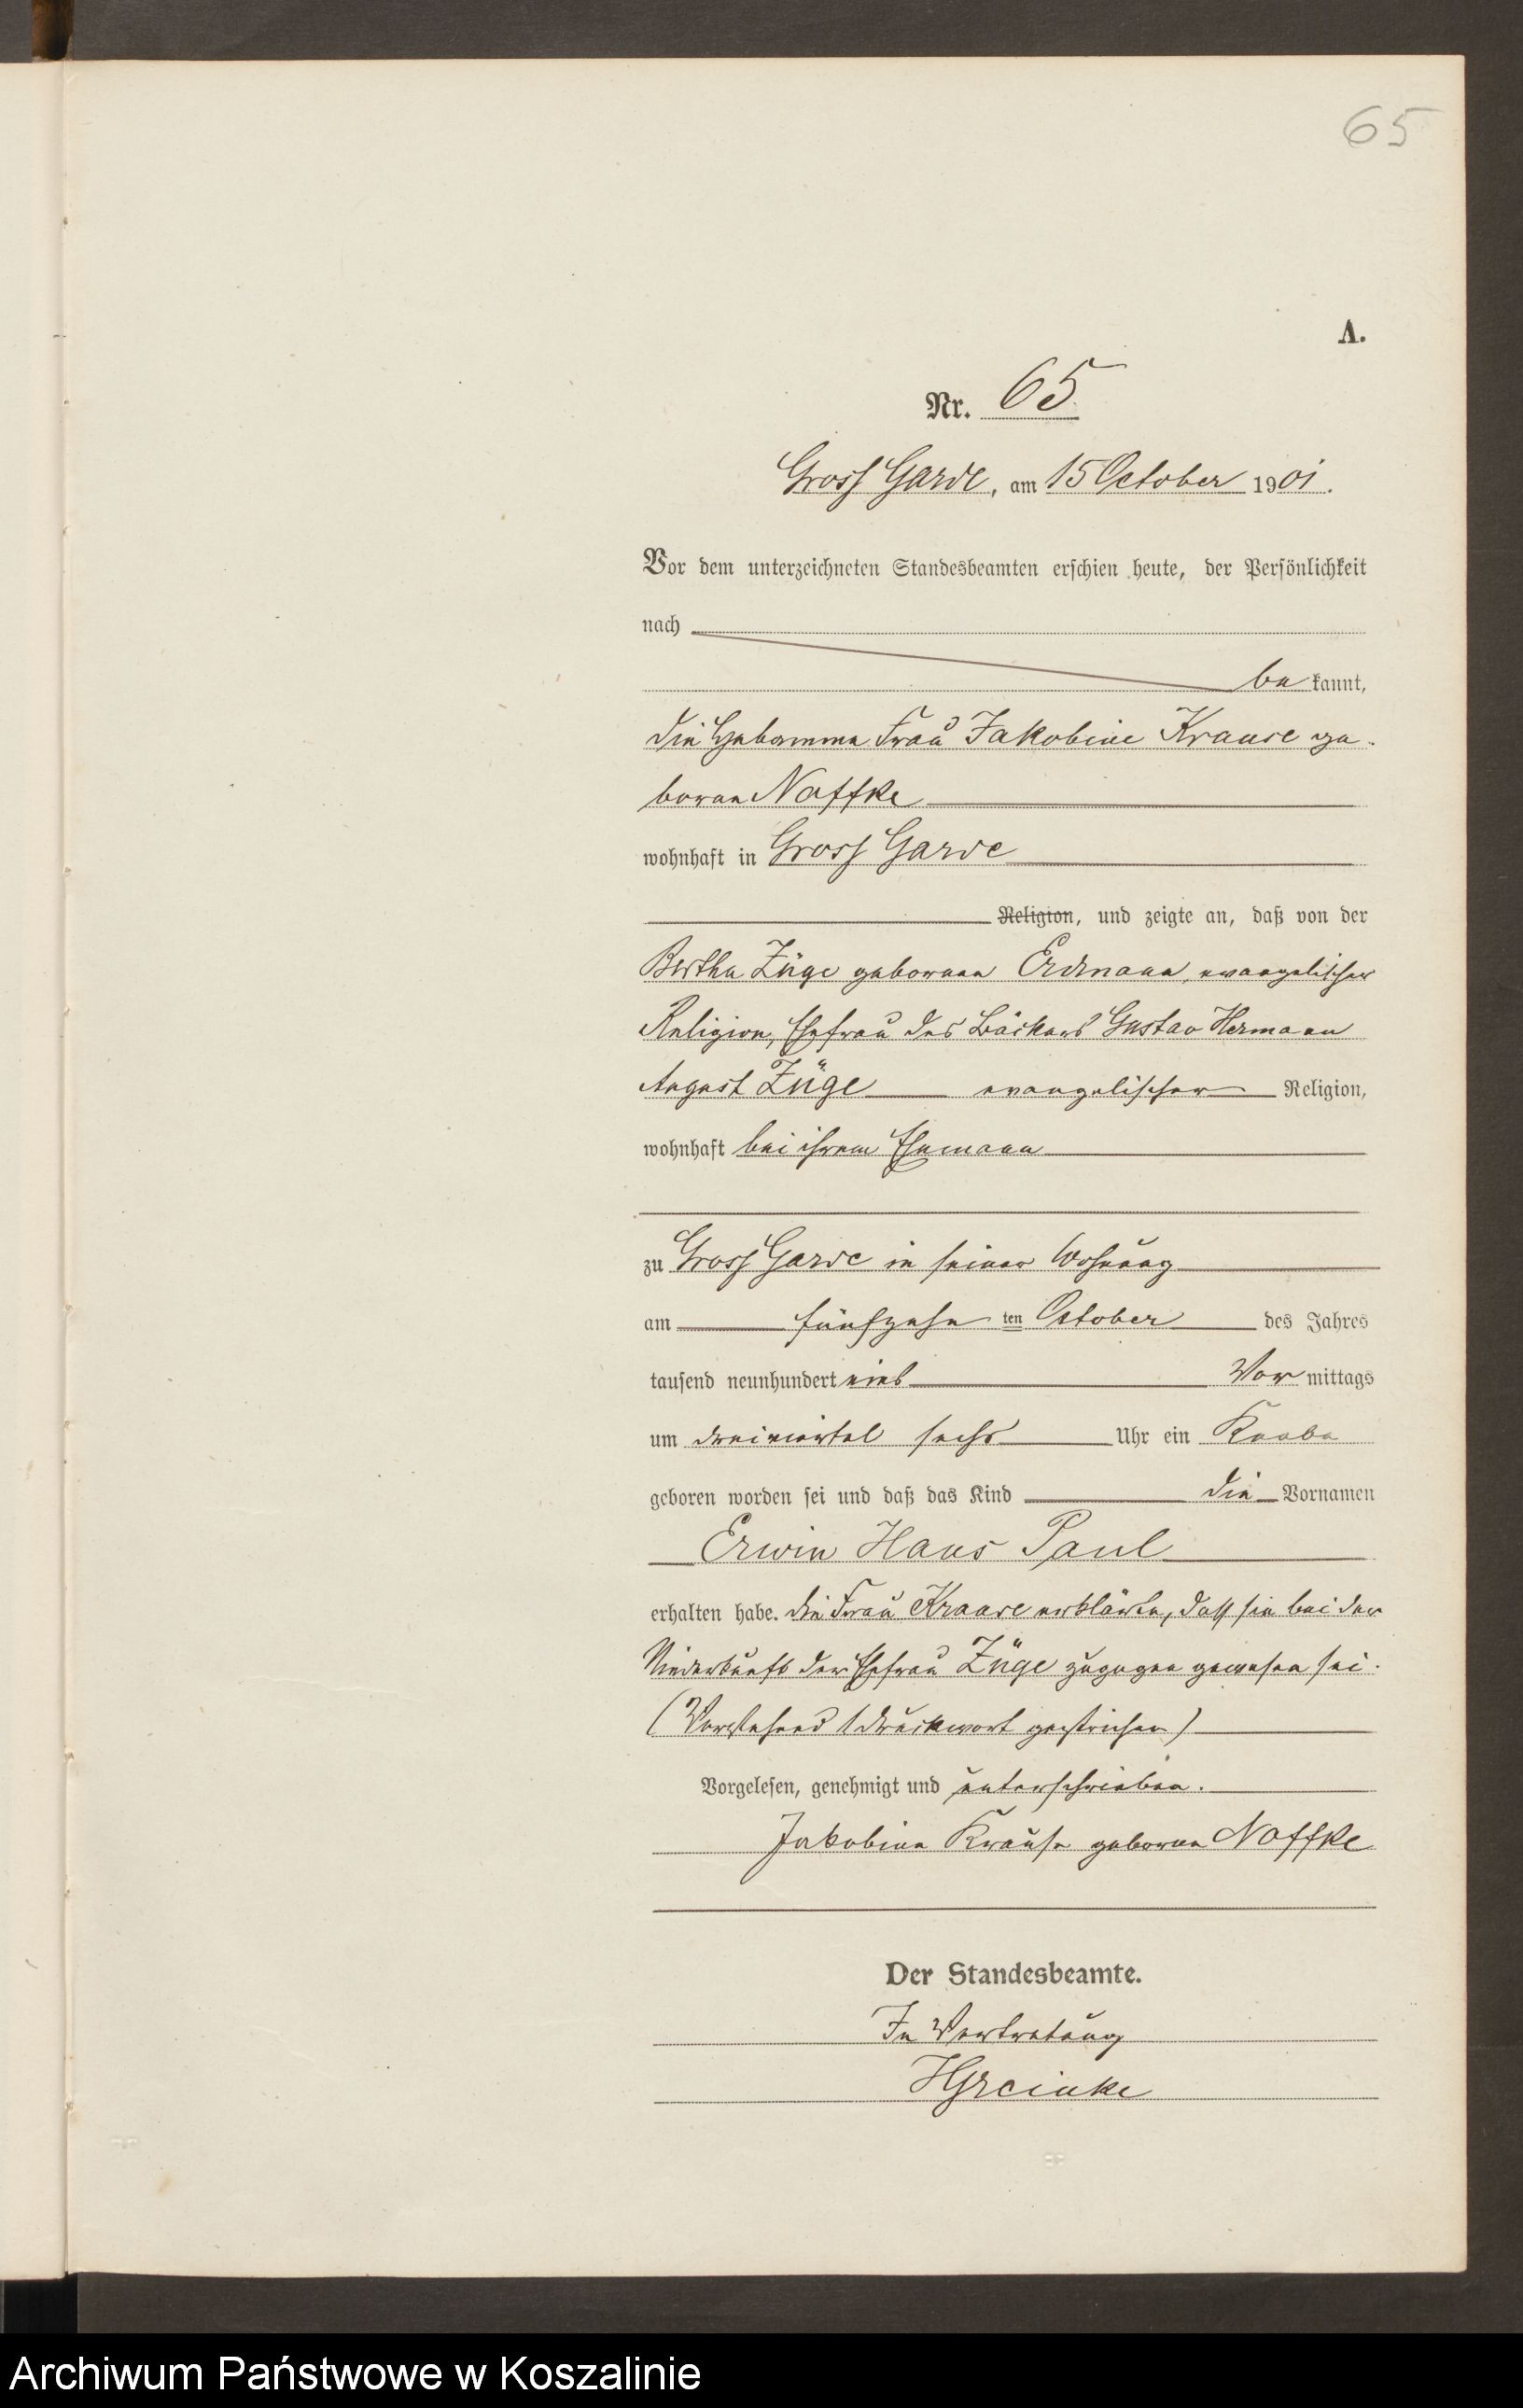 65
A.
Nr. 65
Gross Garde, am 15 October 1901.
Vor dem unterzeichneten Standesbeamten erschien heute, der Persönlichkeit
nach
be kannt,
die Hebamme Frau Jakobine Krause ge-
borene Noffke
wohnhaft in Gross Garde
Religion, und zeigte an, daß von der
Bertha Züge geborenen Erdmann, evangelischer
Religion, Ehefrau des Bäckers Gustav Hermann
August Züge evangelischer Religion,
wohnhaft bei ihrem Ehemann
zu Gross Garde in seiner Wohnung
am fünfzehn ten October des Jahres
tausend neunhundert eins Vor mittags
um dreiviertel sechs Uhr ein Knabe
geboren worden sei und daß das Kind die Vornamen
Erwin Hans Paul
erhalten habe. Die Frau Krause erklärte, daß sie bei der
Niederkunft der Ehefrau Züge zugegen gewesen sei.
(Vorstehend 1 Druckwort gestrichen)
Vorgelesen, genehmigt und unterschrieben.
Jakobine Krause geborene Noffke
Der Standesbeamte.
In Vertretung
Archiwum Państwowe w Koszalinie